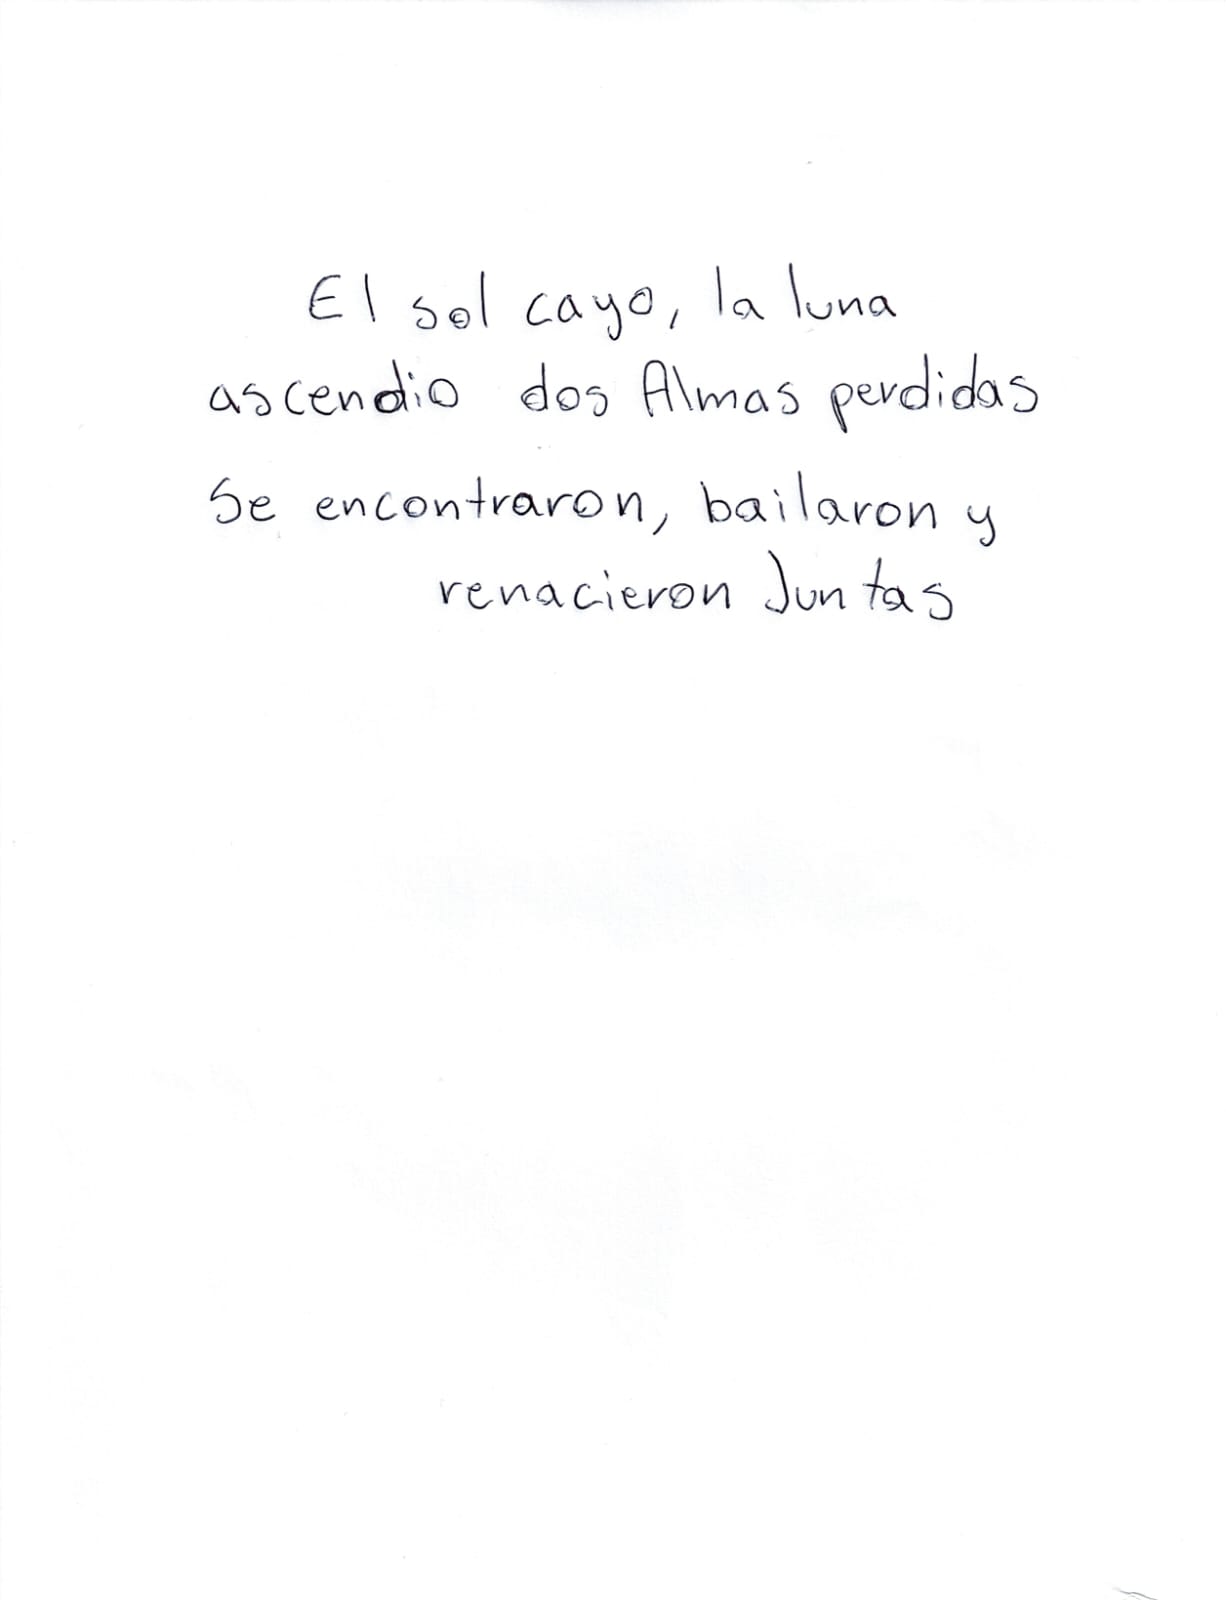 El sol cayo, la luna
ascendio dos Almas perdidas
Se encontraron, bailaron y
renacieron Juntas